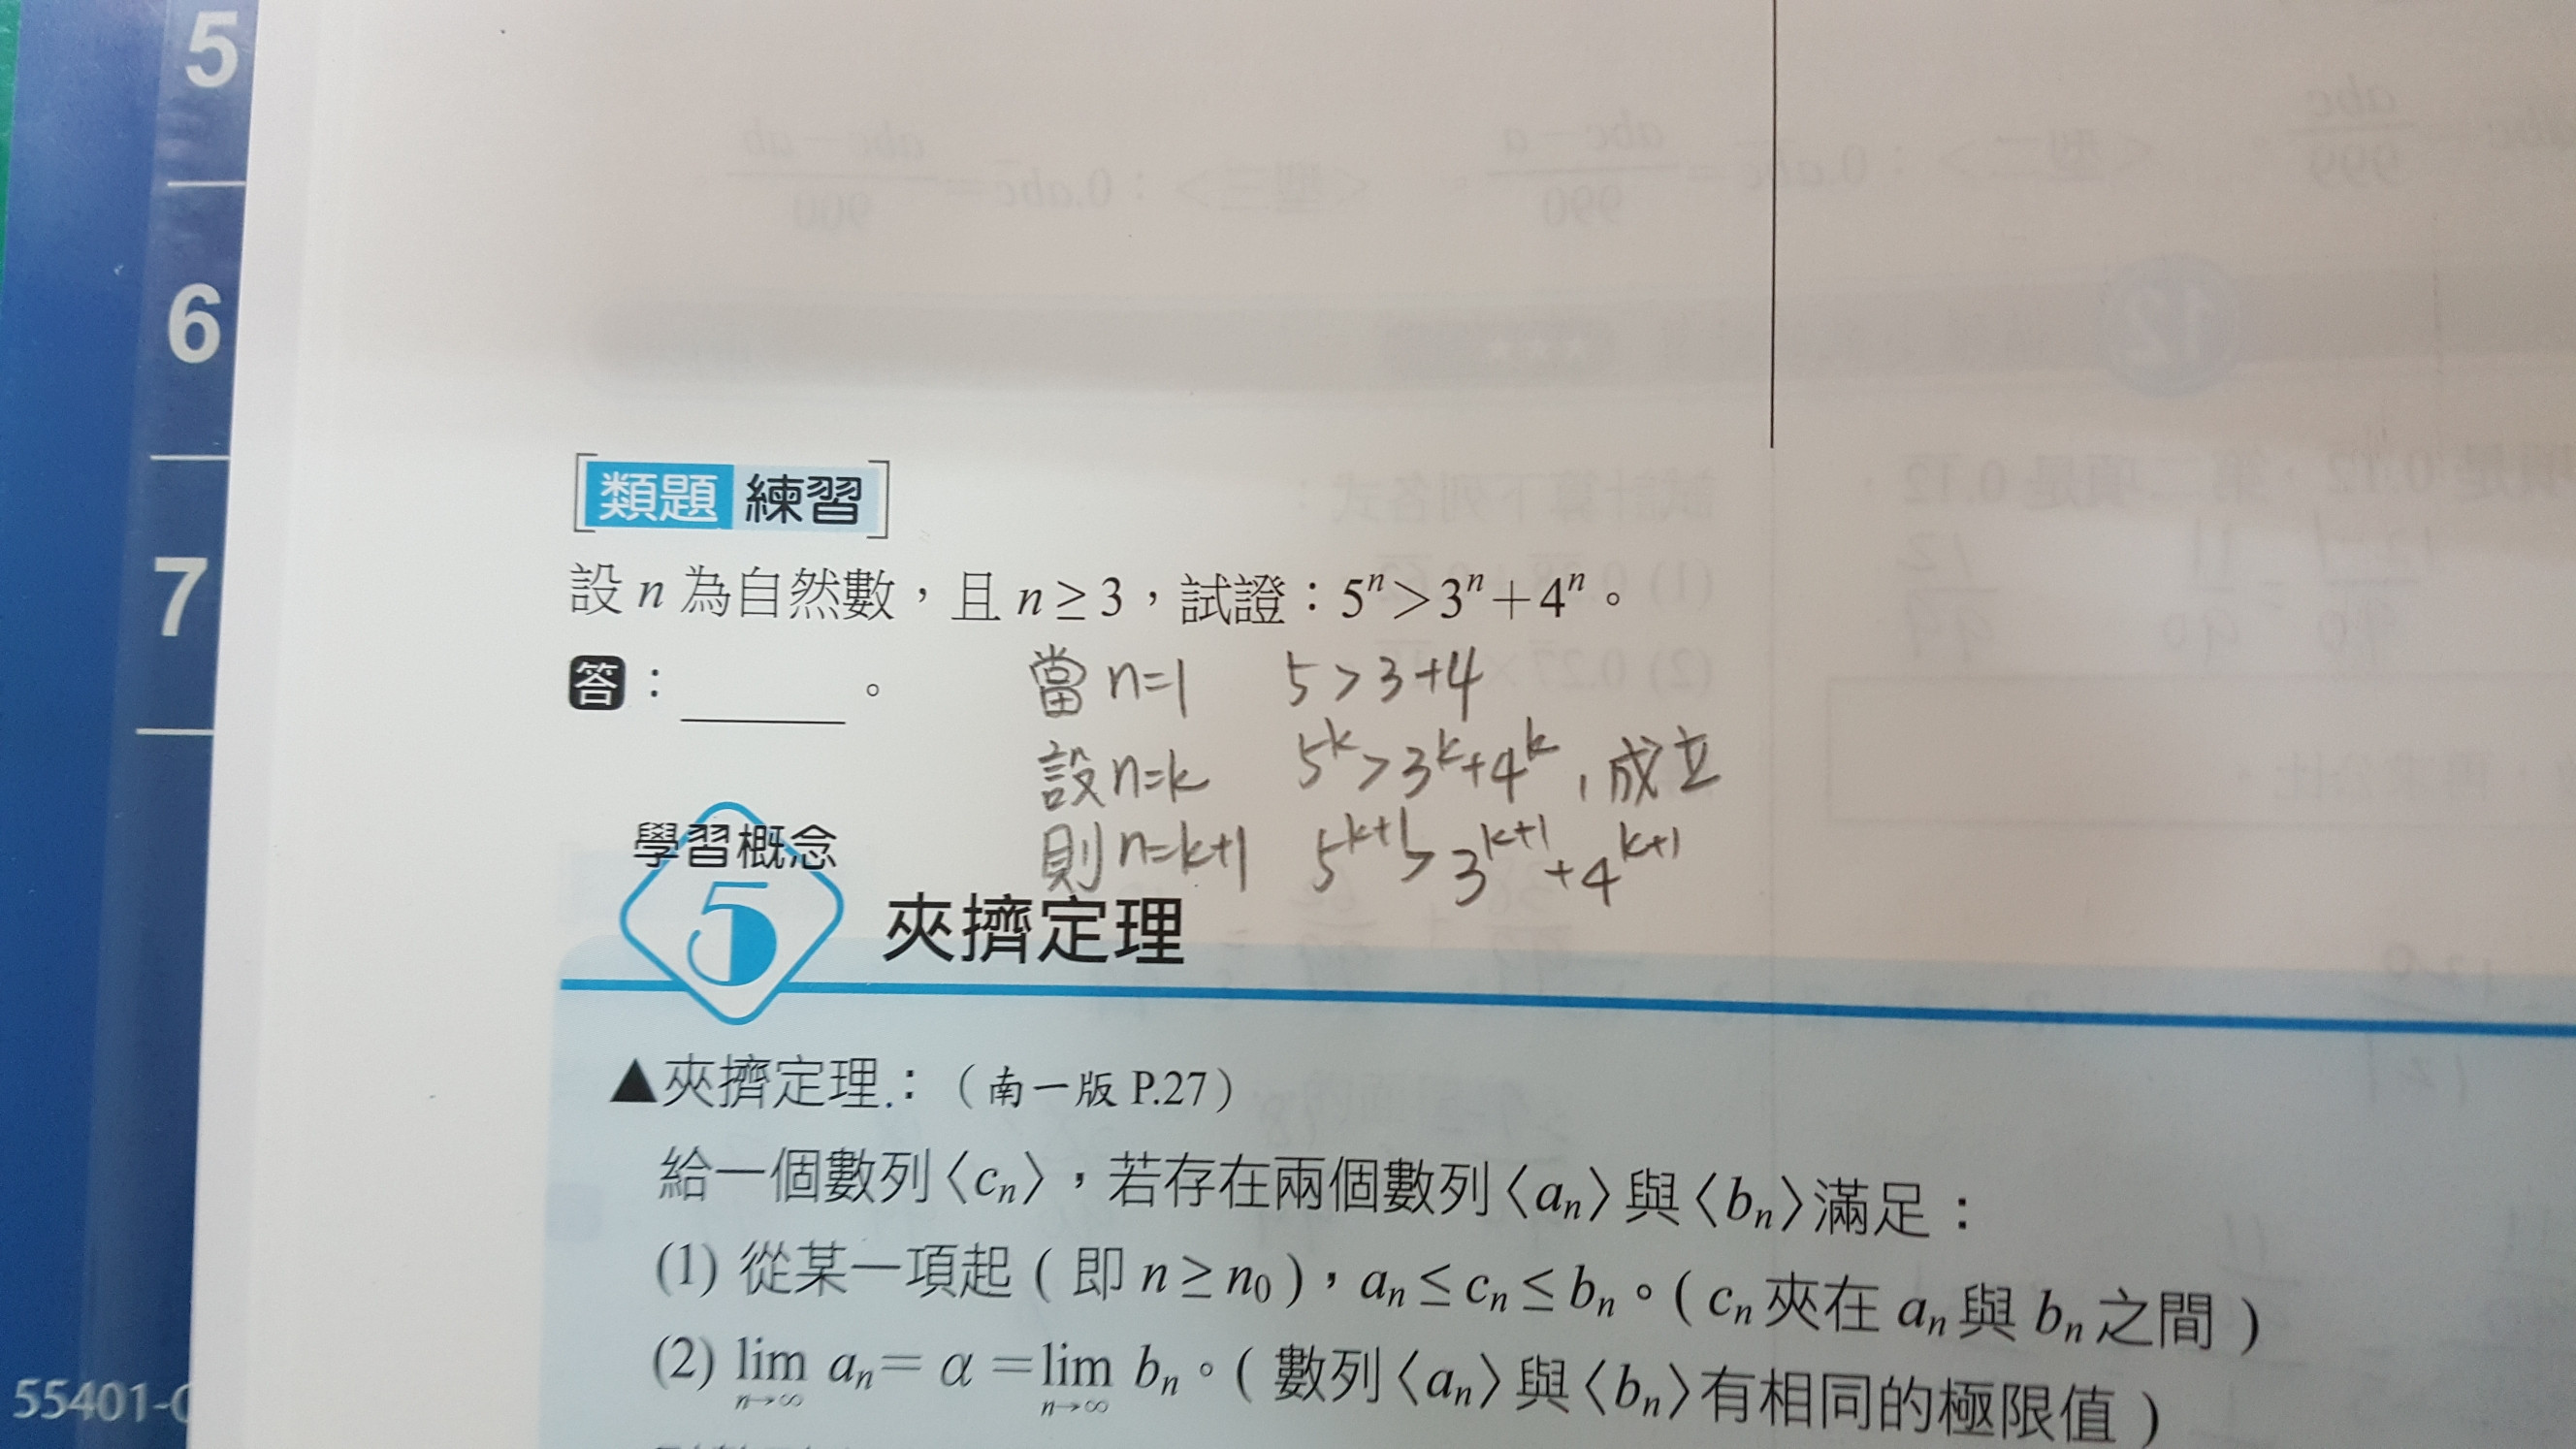 5
6
7
55401-
類題 練習
設 n 為自然數，且 n ≥ 3，試證：5ⁿ＞3ⁿ＋4ⁿ。
答：______。
當 n=1 5 > 3+4
設 n=k 5^k > 3^k+4^k , 成立
則 n=k+1 5^{k+1} > 3^{k+1}+4^{k+1}
學習概念
5 夾擠定理
▲夾擠定理：（南一版 P.27）
給一個數列〈cₙ〉，若存在兩個數列〈aₙ〉與〈bₙ〉滿足：
(1) 從某一項起（即 n ≥ n₀），aₙ ≤ cₙ ≤ bₙ。（cₙ 夾在 aₙ 與 bₙ 之間）
(2) lim_{n→∞} aₙ = α = lim_{n→∞} bₙ。（數列〈aₙ〉與〈bₙ〉有相同的極限值）